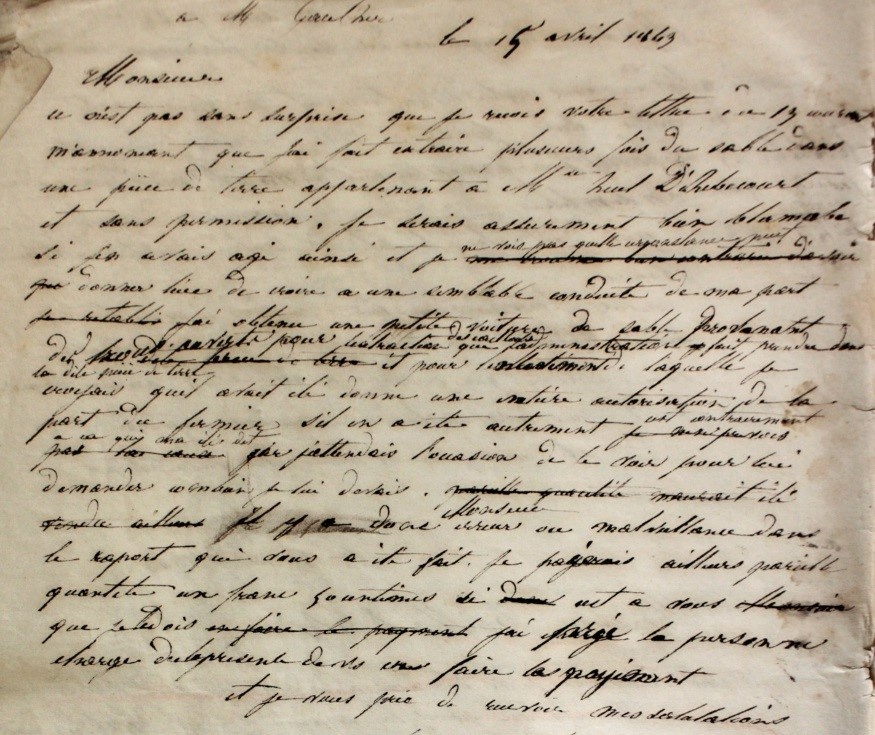 a M Gauthier
le 15 avril 1863
Monsieur
ce n'est pas sans surprise que je recois votre lettre du 13 courant
m'annonçant que j'ai fait extraire plusieurs fois du sable dans
une pièce de terre appartenant a M
et sans permission. je serais assurement bien blamable
si j'en avais agi ainsi et je ne vois pas quelle circonstance peut
donner lieu de croire a une semblable conduite de ma part
je j'ai obtenu une petite voiture de sable provenant
des pour l'extraction des cailloux que l'administration fait prendre dans
la dite piece de terre et pour laquelle je
croyais qu'il avait été donné une entière autorisation de la
part du fermier s'il en a été autrement c'est contrairement
a ce qui m'a été dit car j'attendais l'occasion de le voir pour lui
demander combien je lui devais. pareille quantité m'aurait été
ailleurs Il y a donc Monsieur erreur ou malveillance dans
le raport qui vous a été fait. je payerais ailleurs pareille
quantité un franc 50 centimes si donc c'est a vous Monsieur
que je le dois en faire le payment j'ai chargé la personne
charge de la presente de vous en faire le payement
et je vous prie de recevoir mes salutations